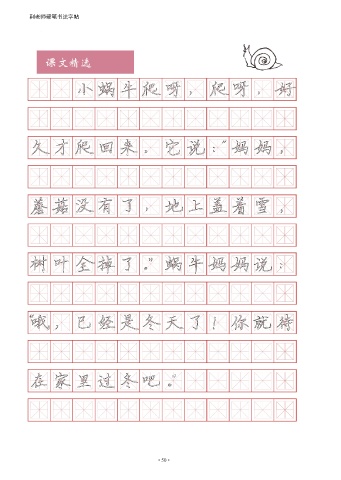 田老师硬笔书法字帖
课文精选
小蜗牛爬呀，爬呀，好
久才爬回来。它说：“妈妈，
蘑菇没有了，地上盖着雪，
树叶全掉了。”蜗牛妈妈说：
“哦，已经是冬天了！你就待
在家里过冬吧。”
·50·